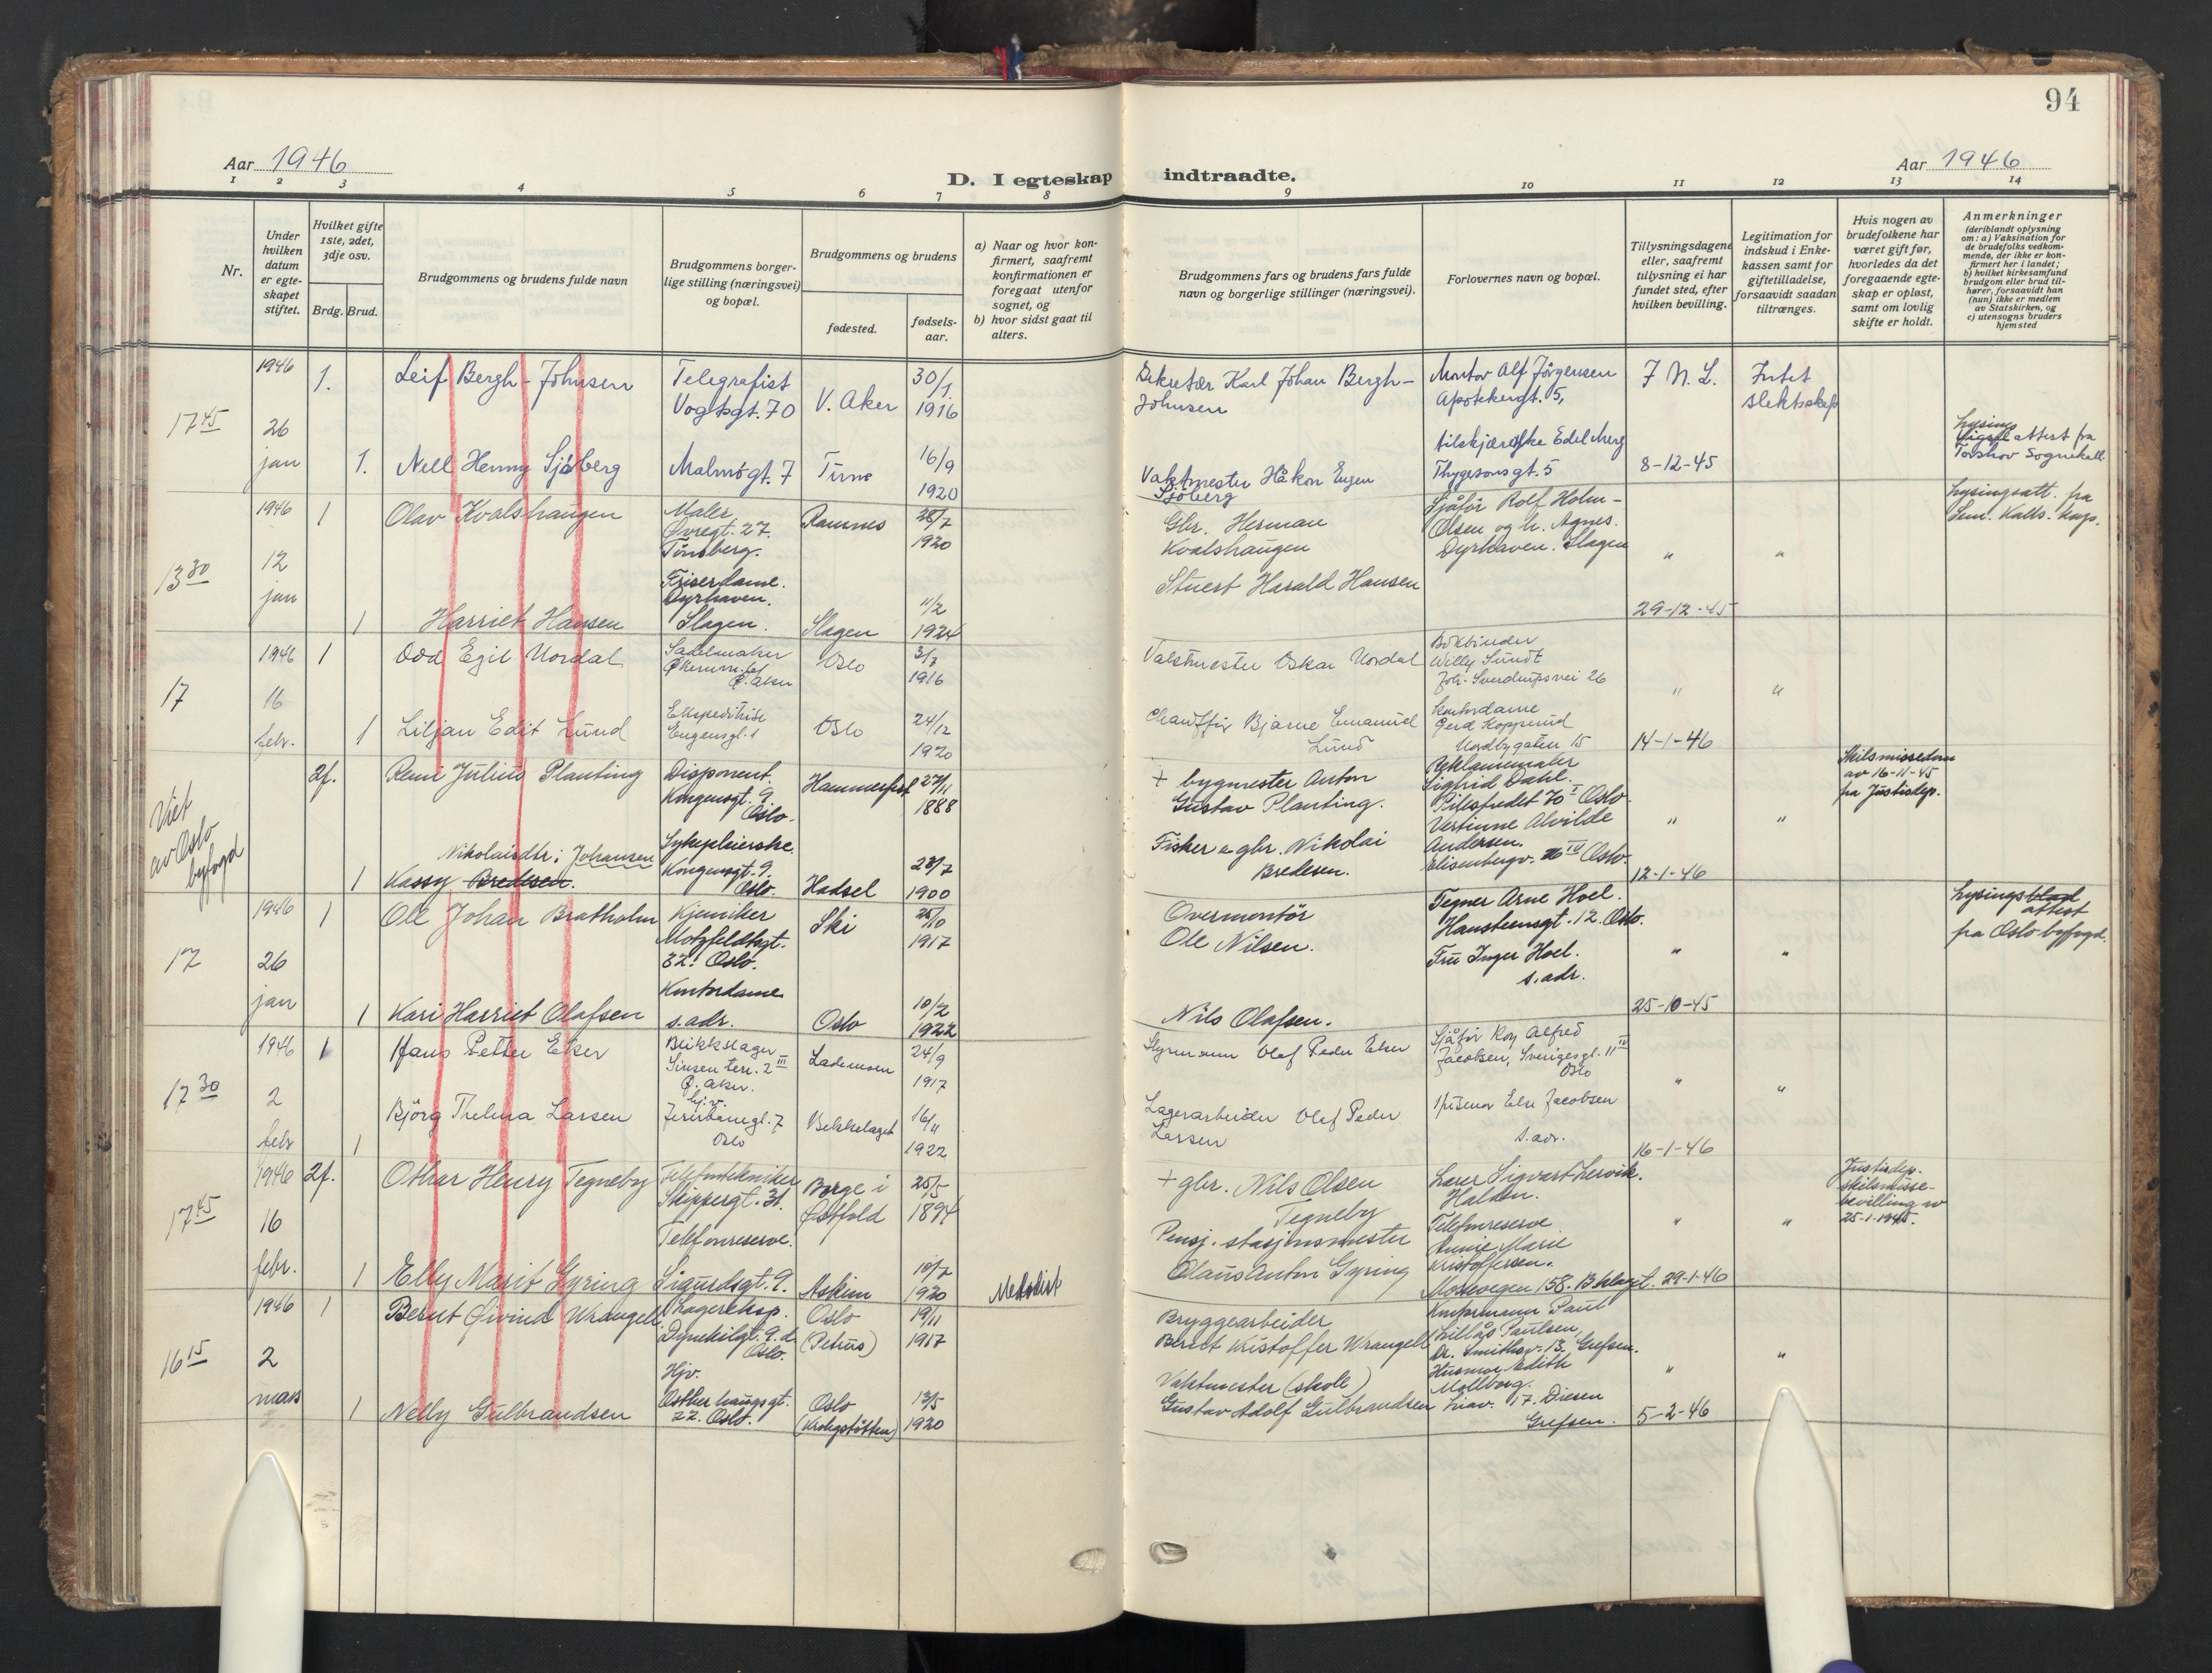 94
Aar 1946
D. I egteskap indtraadte.
Aar 1946
1 2 3 4 5 6 7 8 9 10 11 12 13 14
Nr.
Under hvilken datum er egteskapet stiftet.
Hvilket gifte 1ste, 2det, 3dje osv.
Brdg. Brud.
Brudgommens og brudens fulde navn
Brudgommens borgerlige stilling (næringsvei) og bopæl.
Brudgommens og brudens
fødested.
fødselsaar.
a) Naar og hvor konfirmert, saafremt konfirmationen er foregaat utenfor sognet, og
b) hvor sidst gaat til alters.
Brudgommens fars og brudens fars fulde navn og borgerlige stillinger (næringsvei).
Forlovernes navn og bopæl.
Tillysningsdagene eller, saafremt tillysning ei har fundet sted, efter hvilken bevilling.
Legitimation for indskud i Enkekassen samt for giftetilladelse, forsaavidt saadan tiltrænges.
Hvis nogen av brudefolkene har været gift før, hvorledes da det foregaaende egteskap er opløst, samt om lovlig skifte er holdt.
Anmerkninger
(deriblandt oplysning om: a) Vaksination for de brudefolks vedkommende, der ikke er konfirmert her i landet; b) hvilket kirkesamfund brudgom eller brud tilhører, forsaavidt han (hun) ikke er medlem av Statskirken, og c) utensogns bruders hjemsted
17 45
1946
26
jan
1.
Leif Bergh-Johnsen
Telegrafist
Vogtsgt. 70
V. Aker
30/1.
1916
Sekretær Karl Johan Bergh-
Johnsen
Montør Alf Jörgensen
Apotekergt. 5,
7 N. L.
Intet
slektskap
1.
Nell Henny Sjöberg
Malmøgt. 7
16/9
1920
Vaktmester Håkon Eugen
Sjöberg
Thygesonsgt. 5
8-12-45
attest fra
Torshov Sognekall
13 30
1946
12
jan
1
Olav Kvalshaugen
Maler
Øvregt. 27.
Tönsberg.
Ramnes
28/7
1920
Gbr. Herman
Kvalshaugen
Sjåför Rolf Holm-
Olsen og h. Agnes.
Dyrhaven. Slagen
"
"
Lysingsatt. fra
Sem. Kalls. kap.
1
Harriet Hansen
Friserdame.
Dyrhaven.
Slagen.
Slagen
11/2
1924
Stuert Harald Hansen
29-12-45
17
1946
16
febr.
1
Odd Egil Nordal
Sadelmaker
Ö. Aker
Oslo
3/7
1916
Oskar Nordal
Bokbinder
Willy Sundt
Joh. Sverdrupsvei 26
"
"
1
Liljan Edit Lund
Ekspeditrise
Eugensgt. 1
Oslo
24/12
1920
Chauffør Bjarne Emanuel
Lund
Kontordame
Gerd Kopperud
Nordbygaten 15
14-1-46
Viet
av Oslo
byfogd
2f.
Remi Julius Planting
Disponent.
Kongensgt. 9
Oslo.
Hammerfest
27/11
1888
+ bygmester Anton
Gustav Planting.
Reklamemaler
Sigfrid Dahl.
Pilestredet 70 I Oslo.
Vertinne Alvilde
Andersen.
Oslo.
"
"
Skilsmissedom
av 16-11-45
fra Justisdep.
1
Nikolaisdtr; Johansen
Kassy Bredesen.
Sykepleierske.
Kongensgt. 9.
Oslo.
Hadsel
23/7
1900
Fisker & gbr. Nikolai
Bredesen.
12-1-46
17
1946
26
jan
1
Ole Johan Bratholm
Kjemiker
Motzfeldtsgt.
32. Oslo.
Ski
25/10
1917
Overmontör
Ole Nilsen.
Tegner Arne Hoel.
Hansteensgt. 12. Oslo.
Fru Inger Hoel.
s. adr.
"
"
Lysingsblad
attest
fra Oslo byfogd.
1
Kari Harriet Olafsen
Kontordame
s. adr.
Oslo
10/2
1922
Nils Olafsen.
25-10-45
17 30
1946
2
febr
1
Hans Petter Eker
Blikkslager
Sinsen terr. 2 III
Ö. Aker.
Lademoen
24/9
1917
Styrmann Olaf Peder Eker
Sjåför Roy Alfred
Jacobsen, Sverigesgt. 11 IV
Oslo
"
"
1
Björg Thelma Larsen
hj.v.
Jernbanegt. 7
Oslo
Bekkelaget
16/11
1922
Lagerarbeider Olaf Peder
Larsen
Else Jacobsen
s. adr.
16-1-46
17 45
1946
16
febr.
2f.
Othar Henry Tegneby
Telefontekniker
Skippergt. 31.
Borge i
Østfold
25/5
1894
+ gbr. Nils Olsen
Tegneby
Lærer Sigvart Lervik.
Halden.
"
"
Justisdep.
skilsmisse-
bevilling av
25-1-1945.
1
Elly Marit Gyring
Telefonreserve.
Sigurdsgt. 9.
Askim
10/7
1920
Metodist
Pensj. stasjonsmester
Olaus Anton Gyring
Telefonreserve
Annie Marie
Kristoffersen.
Mossevegen 158. Bklaget.
29-1-46
16 15
1946
2
mars
1
Bernt Øivind Wrangell
Lagereksp.
Dynekilgt. 9.d
Oslo.
Oslo
(Petrus)
19/11
1917
Bryggearbeider
Berent Kristoffer Wrangell
Kontormann Paul
Paulsen,
Dr. Smithsv. 13. Grefsen.
"
"
1
Nelly Gulbrandsen
Hjv.
Østherhausgt.
22. Oslo.
Oslo
13/5
1920
Vaktmester (skole)
Gustav Adolf Gulbrandsen
Husmor Edith
Mollberg.
17. Diesen
Grefsen.
5-2-46